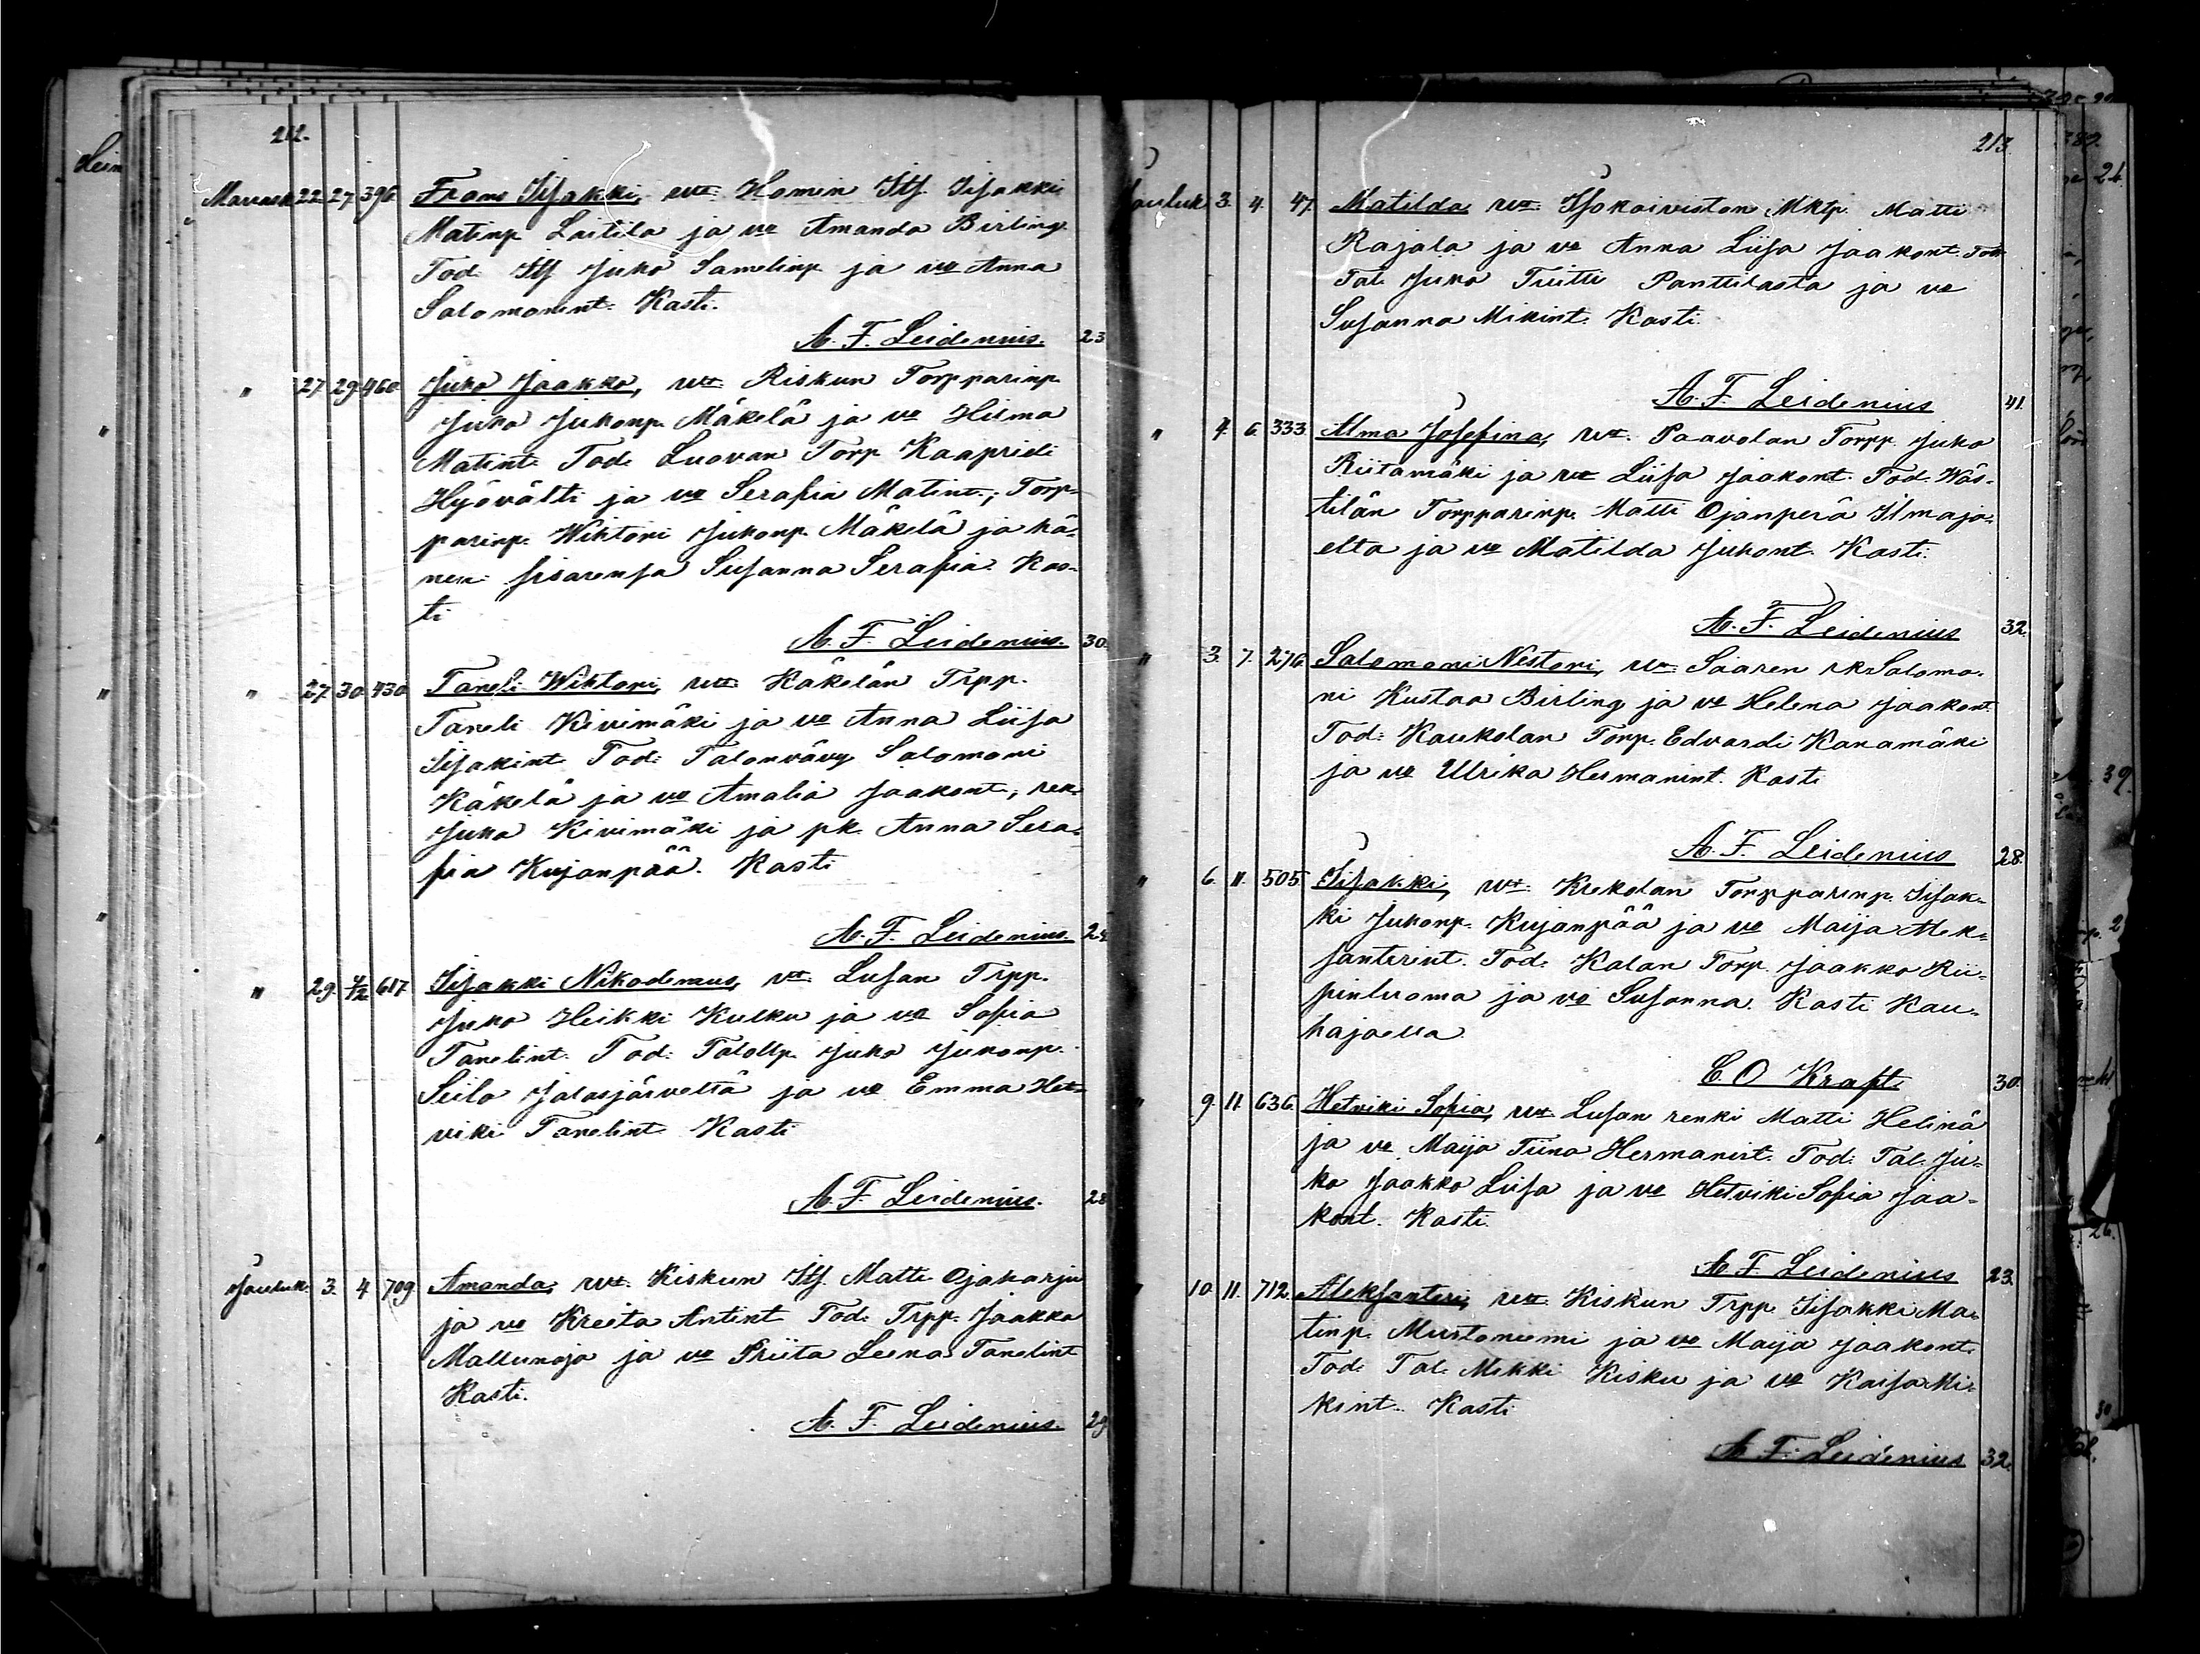 212.
Marrask. 22. 27. 396. Frans Iisakki, vv. Homin Itf. Iisakki
Matinp. Laitila ja vo Amanda Birling.
Tod. Itf Juho Samelinp. ja vo Anna
Salomonint. Kasti.
A. F. Leidenius. 23
" 27. 29. 460. Juho Jaakko, vv. Riskun Torpparinp.
Juho Juhonp. Mäkelä ja vo Hilma
Matint. Tod. Luovan Torp. Kaapridi
Hyövälti ja vo Serafia Matint.; Torp-
parinp. Wihtori Juhonp. Mäkelä ja hä-
nen sisarensa Susanna Serafia. Kas-
ti
A. F. Leidenius. 30.
" 27. 30. 430. Taneli Wihtori, vv. Käkelän Trpp.
Taneli Kivimäki ja vo Anna Liisa
Iisakint. Tod: Talonvävy Salomoni
Käkelä ja vo Amalia Jaakont.; renk.
Juho Kivimäki ja pk. Anna Sera-
fia Kujanpää. Kasti
A. F. Leidenius.
" 29. 4/12 617 Iisakki Nikodemus, vv. Lusan Trpp.
Juho Heikki Kulku ja vo Sofia
Tanelint. Tod: Talollp. Juho Juhonp.
Seilo Jalasjärveltä ja vo Emma Het-
viki Tanelint. Kasti
A. F. Leidenius. 28
Jouluk. 3. 4 709 Amanda, vv. Kiskun Itf. Matti Ojaharju
ja vo Kreeta Antint. Tod: Trpp. Jaakko
Mallunoja ja vo Priita Leena Tanelint
Kasti.
A. F. Leidenius. 29
213
Jouluk. 3. 4. 47. Matilda, vv. Isokoiviston Mktp. Matti
Rajala ja vo Anna Liisa Jaakont. Tod:
Tal. Juho Tuitti Panttilasta ja vo
Susanna Mikint. Kasti.
A. F. Leidenius 41.
" 4. 6. 333. Alma Josefina, vv. Paavolan Torpp. Juho
Riitamäki ja vo Liisa Jaakont. Tod. Wäs-
tilän Torpparinp. Matti Ojanperä Ilmajo-
elta ja vo Matilda Juhont. Kasti.
A. F. Leidenius 32.
" 3. 7. 276. Salomoni Nestori, vv. Saaren rk Salomo-
ni Kustaa Birling ja vo Helena Jaakont.
Tod: Kaukolan Torp. Edvardi Kanamäki
ja vo Ulrika Hermanint. Kasti
A. F. Leidenius 28.
" 6. 11. 505. Iisakki, vv. Krekolan Torpparinp. Iisak-
ki Juhonp. Kujanpää ja vo Maija Alek-
santerint. Tod: Kalan Torp. Jaakko Rii-
penluoma ja vo Susanna. Kasti Kau-
hajoella
C. O Kraft. 30.
" 9. 11. 636. Hetviki Sofia, vv. Lusan renki Matti Helinä
ja vo Maija Tiina Hermanint. Tod: Tal. Ju-
ho Jaakko Lusa ja vo Hetviki Sofia Jaa-
kont. Kasti.
A. F. Leidenius 23.
" 10. 11. 712. Aleksanteri, vv. Kiskun Trpp. Iisakki Ma-
tinp. Mustoneemi ja vo Maija Jaakont.
Tod: Tal. Mikki Kisku ja vo Kaisa Mi-
kint. Kasti
A. F. Leidenius 32.